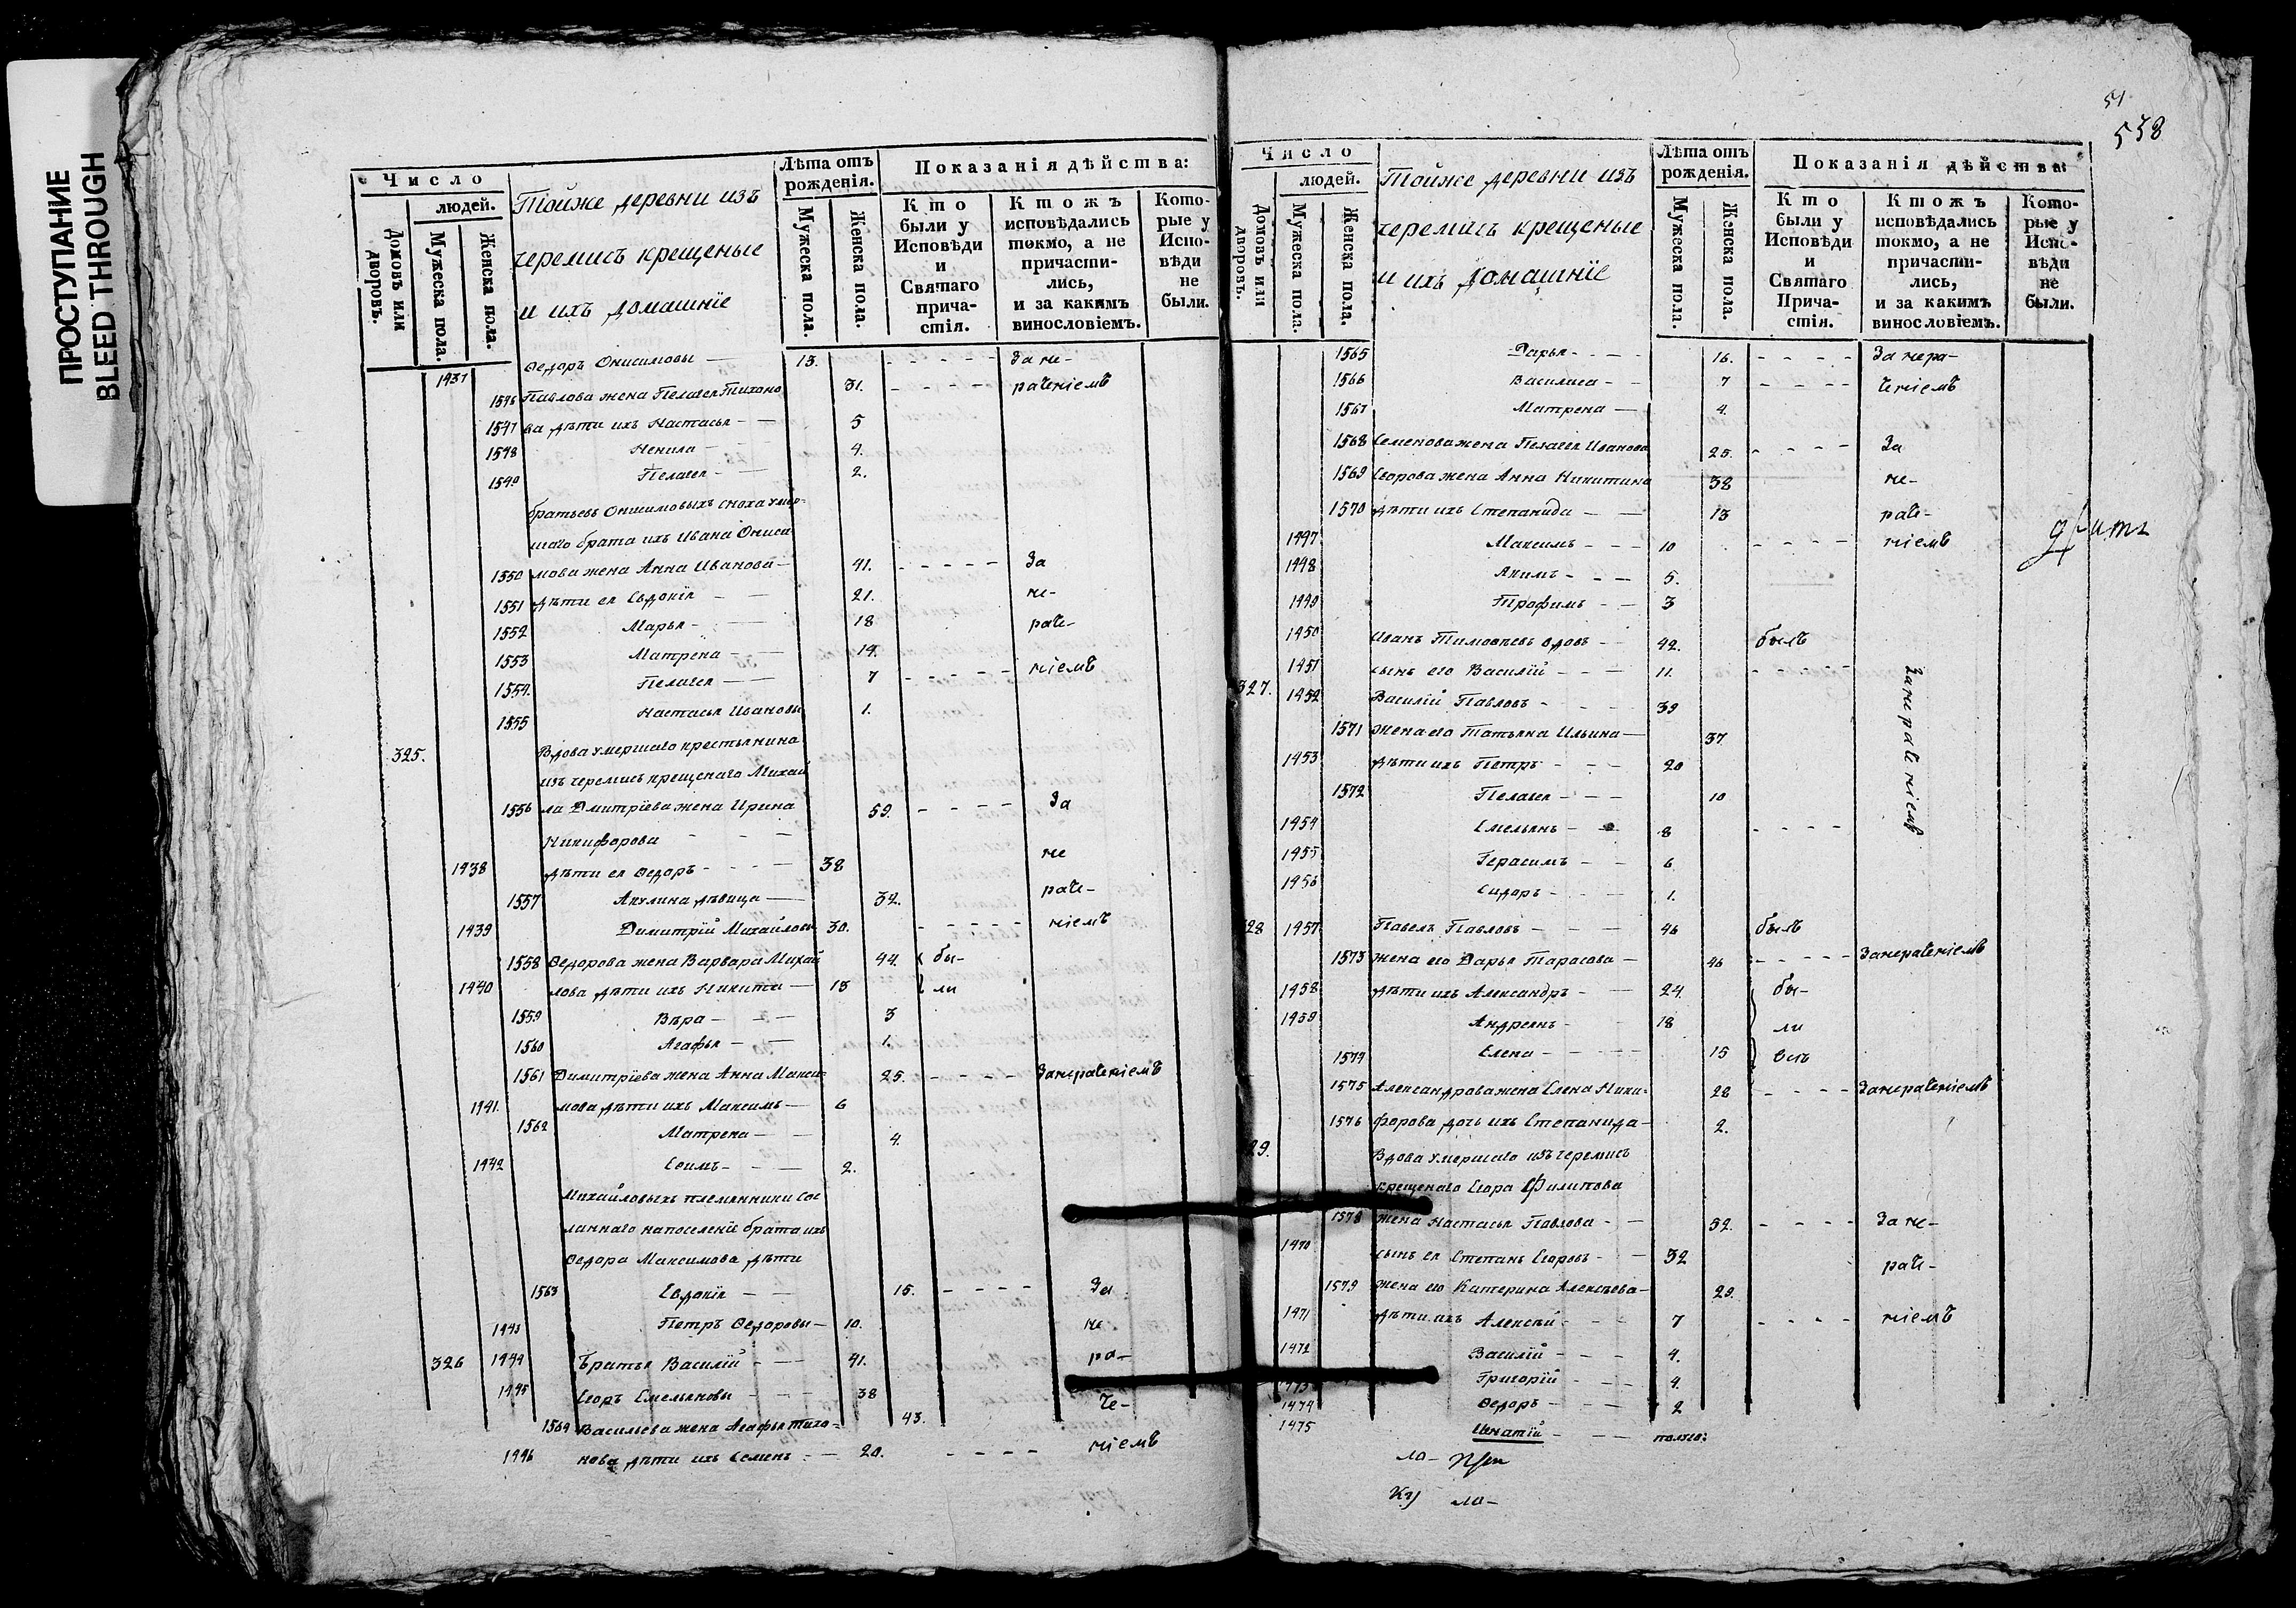 ПРОСТУПАНИЕ
BLEED THROUGH
Число
людей.
Домовъ или дворовъ.
Мужеска пола.
Женска пола.
Тойже деревни изъ
черемисъ крещеные
и ихъ домашніе
Лѣта отъ рожденія.
Мужеска пола.
Женска пола.
Показанія дѣйства:
Кто были у Исповѣди и Святаго причастія.
Ктожъ исповѣдались токмо, а не причастились, и за какимъ винословіемъ.
Которые у Исповѣди не были.
1437 Ѳедоръ Онисимовы — 13. - - - - - За не-
1546 Павлова жена Пелагея Тихоно 31. - - - - раченіемъ
1547 ва дѣти ихъ Настасья - — 5
1548 Ненила - — 4.
1549 Пелагея - — 2.
братьевъ Онисимовыхъ сноха умер-
шаго брата ихъ Ивана Ониси
1550 мова жена Анна Иванова — 41. - - - - - За
1551 дѣти ея Евдокія - — 21. не-
1552 Марья - — 18 раче-
1553 Матрена - — 14.
1554. Пелагея — — 7 - - - - - ніемъ
1555 Настасья Ивановы 1.
325. Вдова умершаго крестьянина
изъ черемисъ крещенаго Михай
1556 ла Дмитріева жена Ирина 59. - - - - За
Никифорова - - —
1438 дѣти ея Ѳедоръ - - - — 38 не
1557 Акулина дѣвица — 32. раче-
1439 Димитрій Михайловы 30. - - - - - ніемъ
1558 Ѳедорова жена Варвара Михай 44. бы-
1440 лова дѣти ихъ Никита — 13 ли
1559 Вѣра - - — 3
1560 Агафья - — 1.
1561 Димитріева жена Анна Макси- 25. - - - - Занераченіемъ
1441. мова дѣти ихъ Максимъ — 6
1562 Матрена — - 4.
1442 Ефимъ - - — 2.
Михайловыхъ племянники сос
ланнаго на поселеніе брата ихъ
Ѳедора Максимова дѣти
1563 Евдокія - — 15. - - - - За
1443 Петръ Ѳедоровы — 10. не
326 1444 Братья Василій - — 41. ра-
1445 Егоръ Емельяновы - — 38 че-
1564 Васильева жена Агафья Тихо- 43.
1446 нова дѣти ихъ Семенъ - — 20. - - - - ніемъ
51
538
Число
людей.
Домовъ или дворовъ.
Мужеска пола.
Женска пола.
Тойже деревни изъ
черемисъ крещеные
и ихъ домашніе
Лѣта отъ рожденія.
Мужеска пола.
Женска пола.
Показанія дѣйства:
Кто были у Исповѣди и Святаго Причастія.
Ктожъ исповѣдались токмо, а не причастились, и за какимъ винословіемъ.
Которые у Исповѣди не были.
1565 Дарья - - — 16. - - - - За нера-
1566 Василиса - - 7 - - - - ченіемъ
1567 Матрена — 4.
1568 Семенова жена Пелагея Иванова 25. - - - - За
1569 Егорова жена Анна Никитина 38 не-
1570 дѣти ихъ Степанида - — 13 раче-
1447 Максимъ - - — 10 - - - - ніемъ
1448 Акимъ - - — 5.
1449 Трофимъ - — 3
1450 Иванъ Тимоѳеевъ вдовъ - 42. былъ
1451 сынъ его Василій - - — 11. - - - -
327. 1452 Василій Павловъ - - - — 39 Занераченіемъ
1571 жена его Татьяна Ильина — 37
1453 дѣти ихъ Петръ - - — 20
1572 Пелагея - - — 10
1454 Емельянъ - — 8 - - - -
1455 Герасимъ - — 6
1456 Сидоръ - - — 1.
28 1457 Павелъ Павловъ - — — 46 былъ
1573 жена его Дарья Тарасова — 46 - - - - - Занераченіемъ
1458 дѣти ихъ Александръ - — 24. бы-
1459 Андреянъ - 18 ли
1574 Елена - - — 15 всѣ
1575 Александрова жена Елена Ники- 28 - - - - Занераченіемъ
1576 форова дочь ихъ Степанида - 2.
29. Вдова умершаго изъ черемисъ
крещенаго Егора Филипова
1578 жена Настасья Павлова - — 52. - - - - За не-
1470 сынъ ея Степанъ Егоровъ - — 32 раче-
1579 жена его Катерина Алексѣева — 29.
1471 дѣти ихъ Алексѣй - - - 7 - - - - ніемъ
1472 Василій - - — 4.
1473 Григорій - - — 4.
1474 Ѳедоръ - - — 2
1475 Игнатій - - —
ла-
ла-